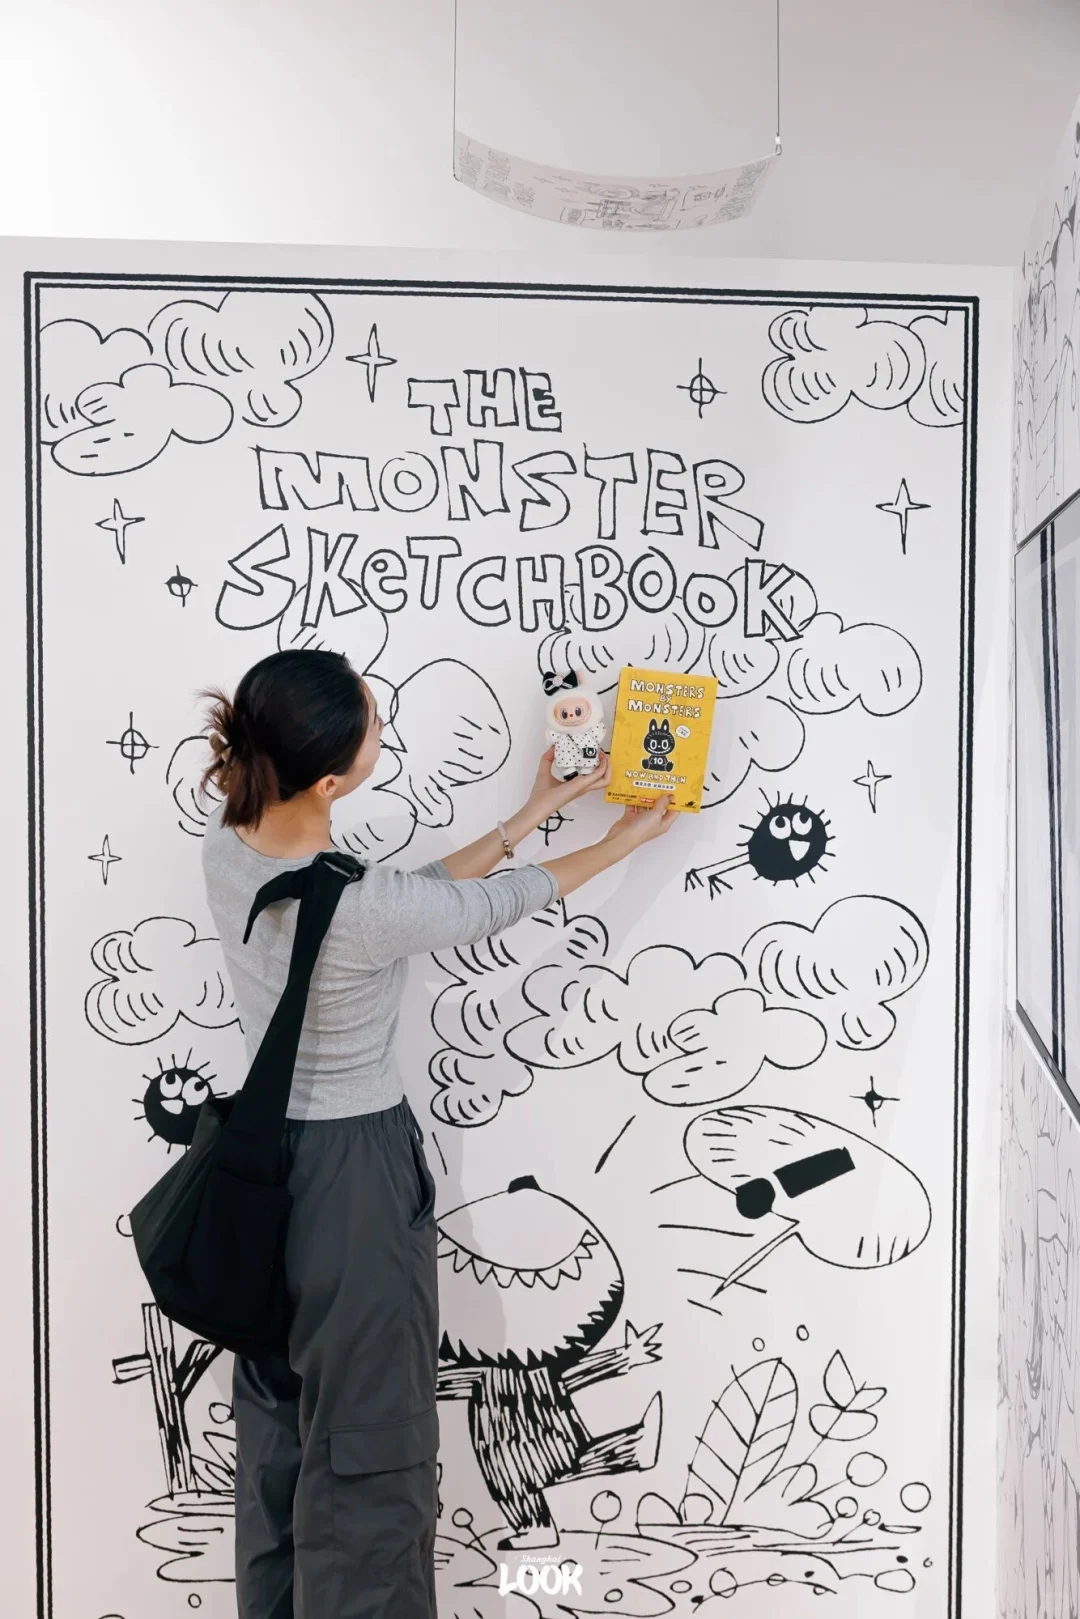 THE
MONSTER
SKeTCHBOOK
MONSTERS
BY
MONSTERS
10
NOW AND THEN
Shanghai
LOOK